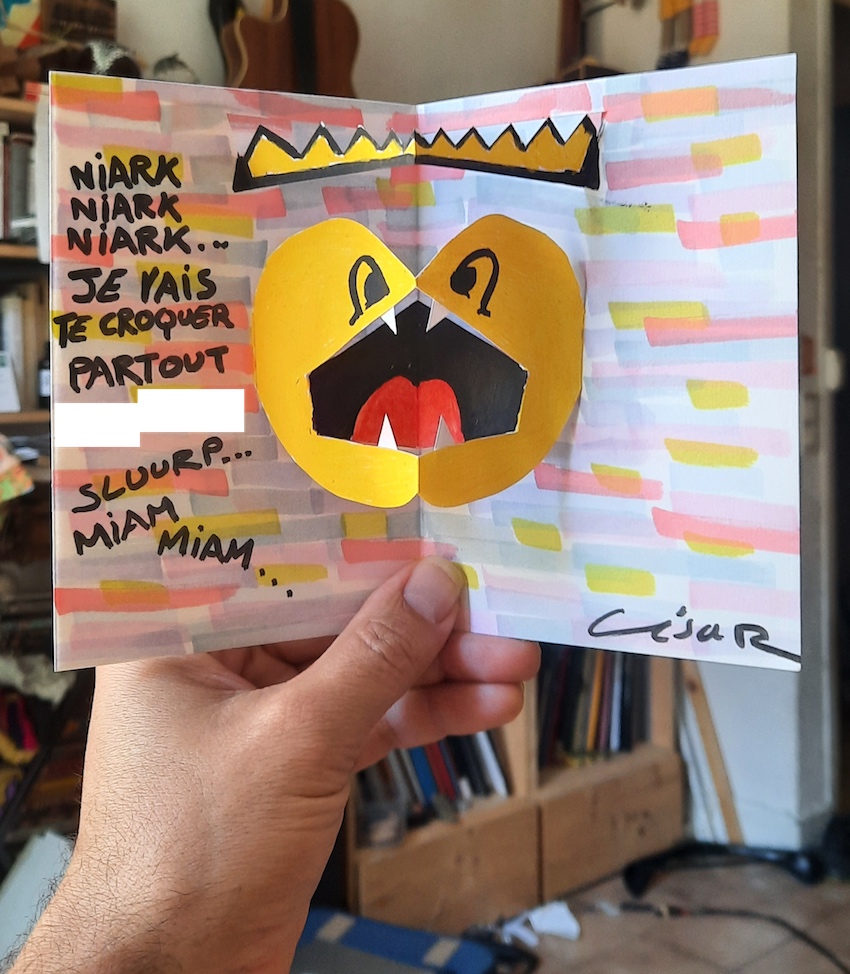 NiARK
NiARK
NiARK...
JE VAiS
TE CROQUER
PARTOUT
SLUURP...
MiAM
MiAM...
César